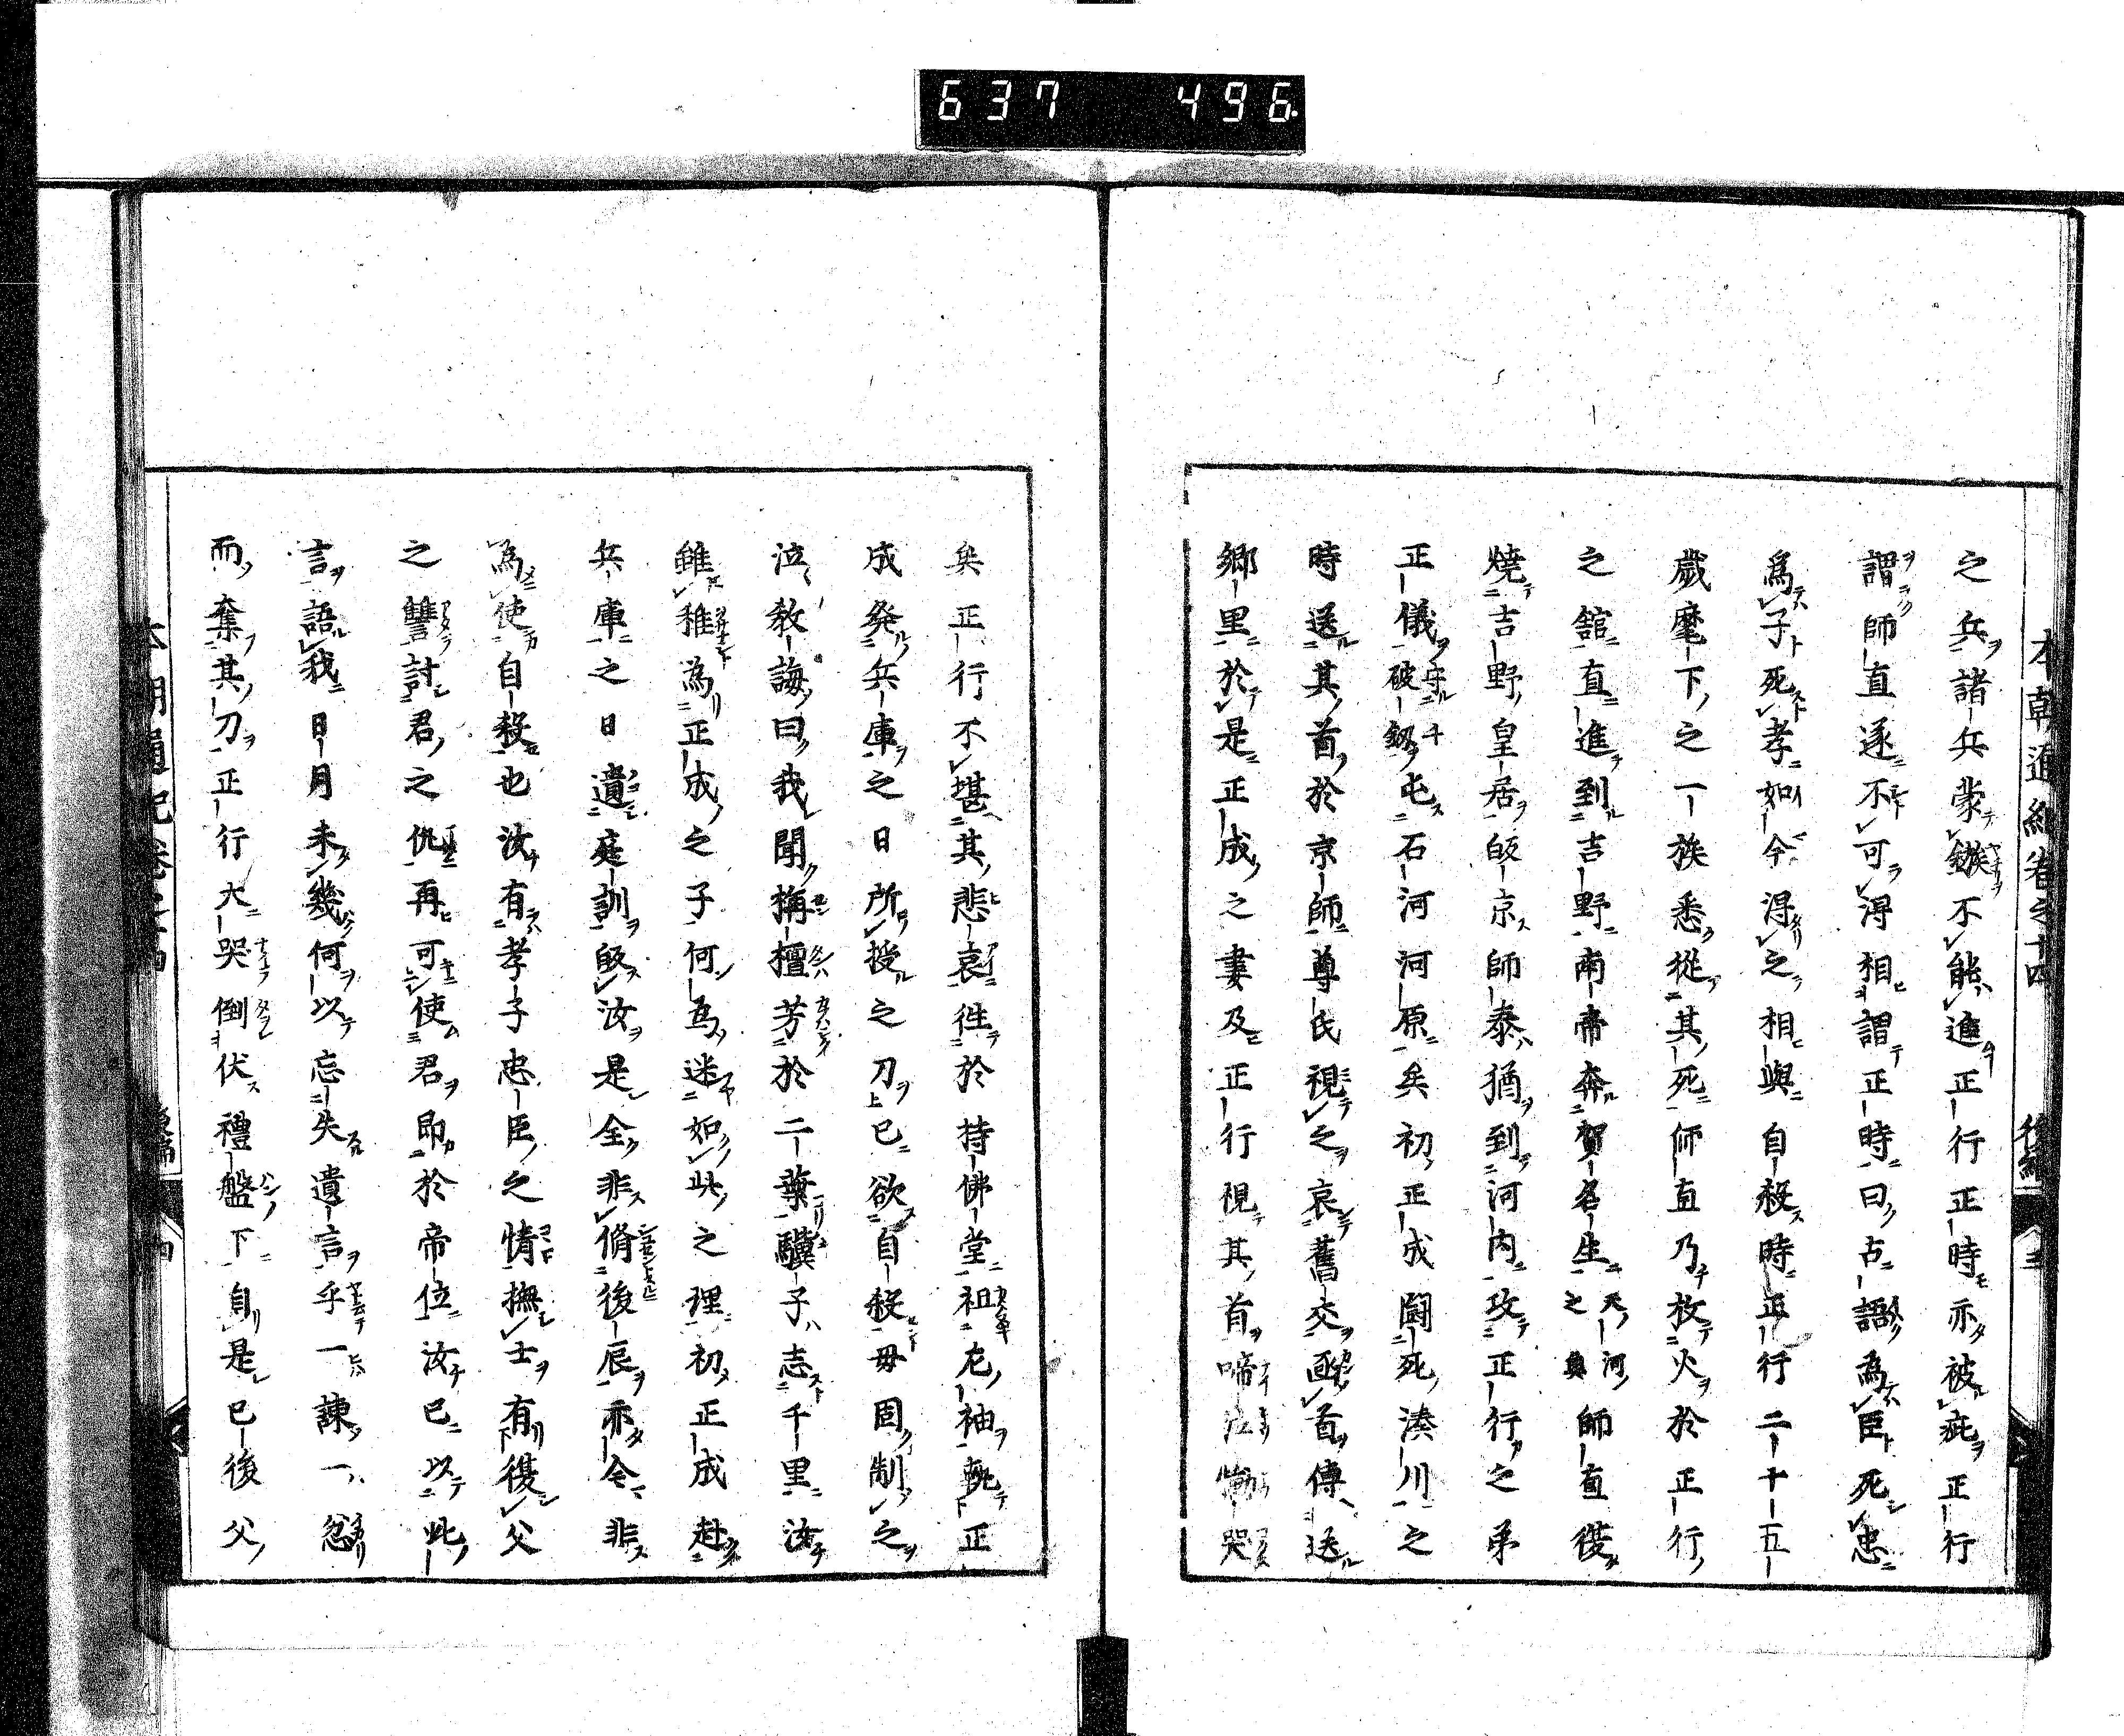 637 496
本朝通紀卷之十四 後編
之兵諸兵蒙鏃不能進正行正時亦被疵正行
謂師直遂不可得相謂正時曰古語為臣死忠
爲子死孝如今得之相與自殺時正行二十五
歲麾下之一族悉從其死師直乃放火於正行
之舘直進到吉野南帝奔賀名生天之河奧師直從
燒吉野皇居皈京師泰猶到河内攻正行之弟
正儀守破千釼屯石河河原矣初正成鬪死湊川之
時送其首於京師尊氏視之哀舊交函首傳送
郷里於是正成之妻及正行視其首啼泣慟哭
矣正行不堪其悲哀徃於持佛堂祖尢袖執正
成発兵庫之日所授之刀已欲自殺毋固制之
泣教誨曰我聞栴檀芳於二葉驥子志千里汝
雖稚為正成之子何爲迷如此之理初正成赴
兵庫之日遺庭訓皈汝是全非脩後辰亦令非
為使自殺也汝有孝子忠臣之情撫士有復父
之讐討君之仇再可使君即於帝位汝已以此
言語我日月未幾何以忘失遺言乎一諫一忿
而奪其刀正行大哭倒伏禮盤下自是已後父